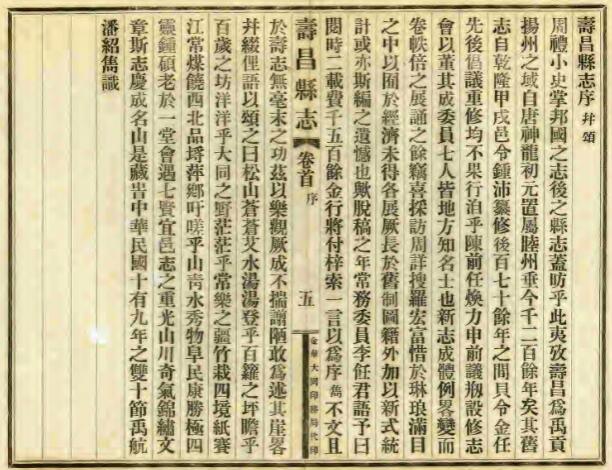 壽昌縣志序 幷頌
周禮小史掌邦國之志後之縣志蓋昉乎此夷攷壽昌爲禹貢
揚州之域自唐神龍初元置屬睦州垂今千二百餘年矣其舊
志自乾隆甲戌邑令鍾沛纂修後百七十餘年之間貝令金任
先後倡議重修均不果行洎乎陳前任煥力申前議剏設修志
會以董其成委員七人皆地方知名士也新志成體例畧變而
卷帙倍之展誦之餘竊喜採訪周詳搜羅宏富惜於琳琅滿目
之中以囿於經濟未得各展厥長於舊制圖籍外加以新式統
計或亦斯編之遺憾也歟脫稿之年常務委員李飪君語予曰
閱時二載費千五百餘金行將付梓索一言以爲序雋不文且
壽昌縣志 卷首 序 五 金華大同印務局代印
於壽志無毫末之功茲以樂觀厥成不揣譾陋敢爲述其崖畧
幷綴俚語以頌之曰松山蒼蒼艾水湯湯登乎百籮之坪瞻乎
百歲之坊洋洋乎大同之野茫茫乎常樂之疆竹栽四境紙賽
江常煤饒西北品埒萍鄉吁嗟乎山靑水秀物阜民康勝極四
靈鍾碩老於一堂會遇七賢宜邑志之重光山川奇氣錦繡文
章斯志慶成名山是藏旹中華民國十有九年之雙十節禹航
潘紹雋識